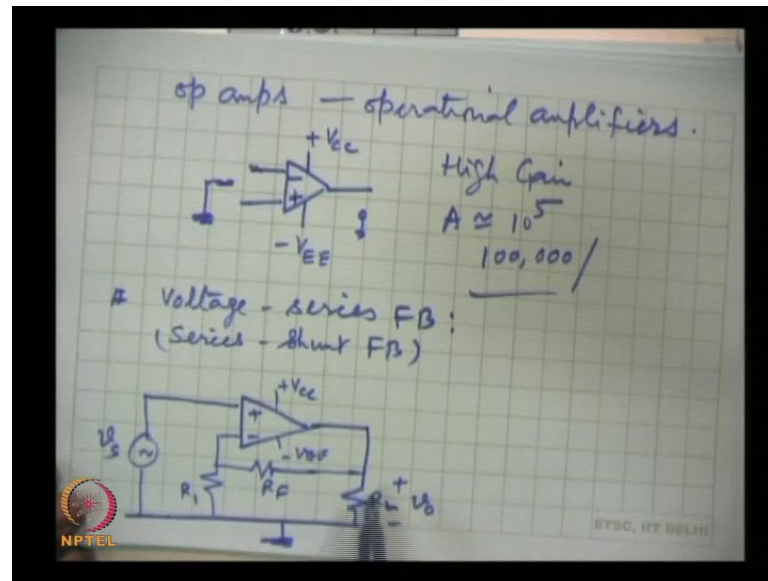 op amps — operational amplifiers.
+ Vcc
High Gain
- +
A ≃ 10^5
- VEE
100,000 /
# Voltage - series FB :
(Series - Shunt FB)
+Vcc
+ -
-VEE
vs
R1
RF
RL
+ vo -
NPTEL
ETSC, IIT DELHI